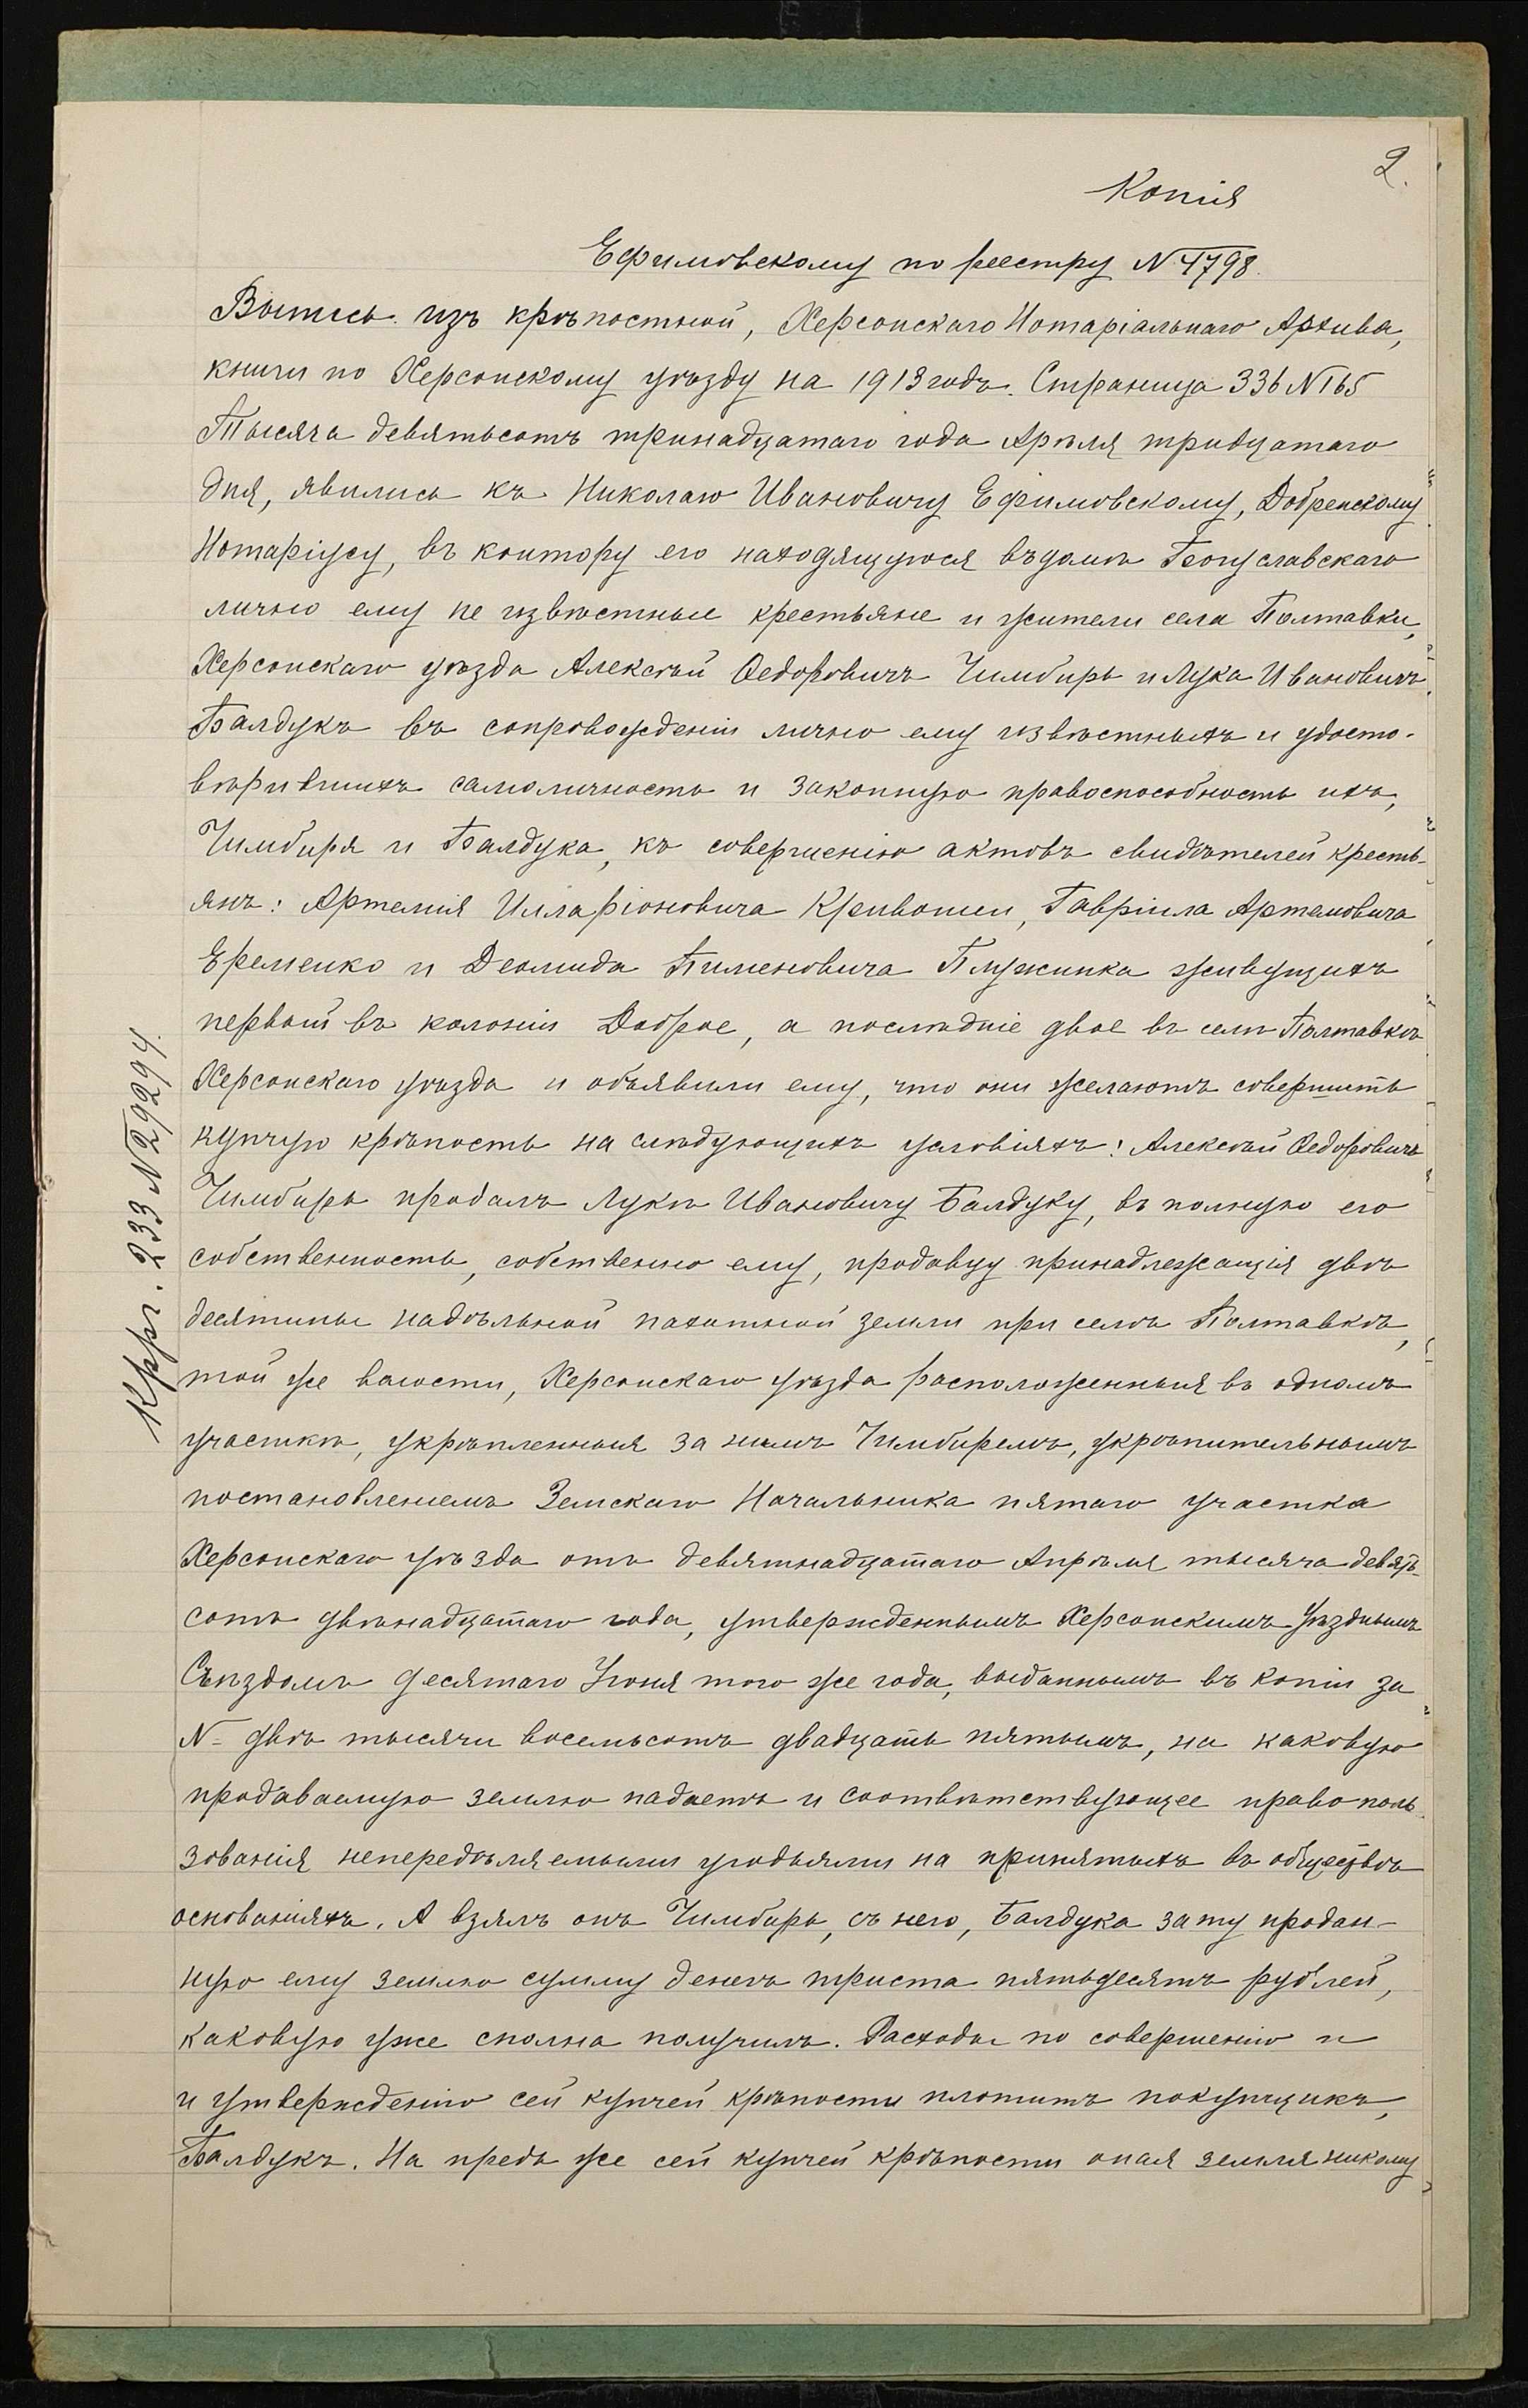 2.
Копія
Ефимовскому по реестру N 4798.
Выпись изъ крѣпостной, Херсонскаго Нотаріальнаго Архива,
книги по Херсонскому уѣзду на 1913 годъ. Страница 336 N 165
Тысяча девятьсотъ тринадцатаго года Арѣля тридцатаго
дня, явились къ Николаю Ивановичу Ефимовскому, Добренскому
Нотаріусу, въ контору его находящуюся въ домѣ Богуславскаго
лично ему не извѣстные крестьяне и жители села Полтавки,
Херсонскаго уѣзда Алексѣй Ѳедоровичъ Чимбирь и Лука Ивановичъ
Балдукъ въ сопровожденіи лично ему извѣстныхъ и удосто-
вѣрившихъ самоличность и законную правоспособность ихъ,
Чимбиря и Балдука, къ совершенію актовъ свидѣтелей кресть-
янъ: Артемія Илларіоновича Кривошеи, Гавріила Артемовича
Еременко и Деомида Пименовича Плужника живущихъ
первый въ колоніи Доброе, а послѣдніе двое въ селѣ Полтавкѣ
Херсонскаго уѣзда и объявили ему, что они желаютъ совершить
купчую крѣпость на слѣдующихъ условіяхъ: Алексѣй Ѳедоровичъ
Чимбирь продалъ Лукѣ Ивановичу Балдуку, въ полную его
собственность, собственно ему, продавцу принадлежащія двѣ
десятины надѣльной пахатной земли при селѣ Полтавкѣ,
той же волости, Херсонскаго уѣзда расположенныя въ одномъ
участкѣ, укрѣпленныя за нимъ Чимбиремъ, укрѣпительнымъ
постановленіемъ Земскаго Начальника пятаго участка
Херсонскаго уѣзда отъ девятнадцатаго Апрѣля тысяча девять-
сотъ двѣнадцатаго года, утвержденнымъ Херсонскимъ Уѣзднымъ
Съѣздомъ десятаго Іюня того же года, выданнымъ въ копіи за
N двѣ тысячи восемьсотъ двадцать пятымъ, на каковую
продаваемую землю падаетъ и соотвѣтствующее право поль-
зованія непередѣляемыми угодьями на принятыхъ въ обществѣ
основаніяхъ. А взялъ онъ Чимбирь, съ него, Балдука за ту продан-
ную ему землю сумму денегъ триста пятьдесятъ рублей,
каковую уже сполна получилъ. Расходы по совершенію и
и утвержденію сей купчей крѣпости платитъ покупщикъ,
Балдукъ. На предъ же сей купчей крѣпости оная земля никому
Крр. 233 N 29294